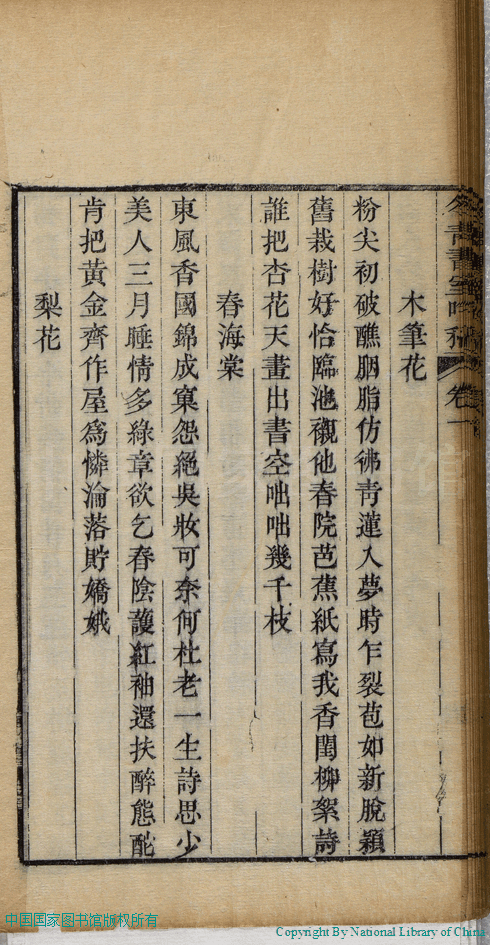 木筆花
粉尖初破醮胭脂仿彿青蓮入夢時乍裂苞如新脫穎
舊栽樹好恰臨池襯他春院芭蕉紙寫我香閨柳絮詩
誰把杏花天畫出書空咄咄幾千枝
春海棠
東風香國錦成窠怨絕吳妝可奈何杜老一生詩思少
美人三月睡情多綠章欲乞春陰護紅袖還扶醉態酡
肯把黃金齊作屋為憐淪落貯嬌娥
梨花
青書室吟稿 卷一
中国国家图书馆版权所有
Copyright By National Library of China